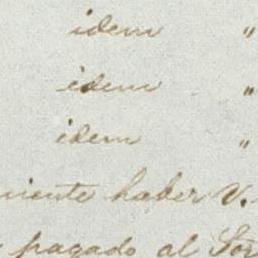 idem "
idem "
idem "
niente haber V.
pagado al Sor